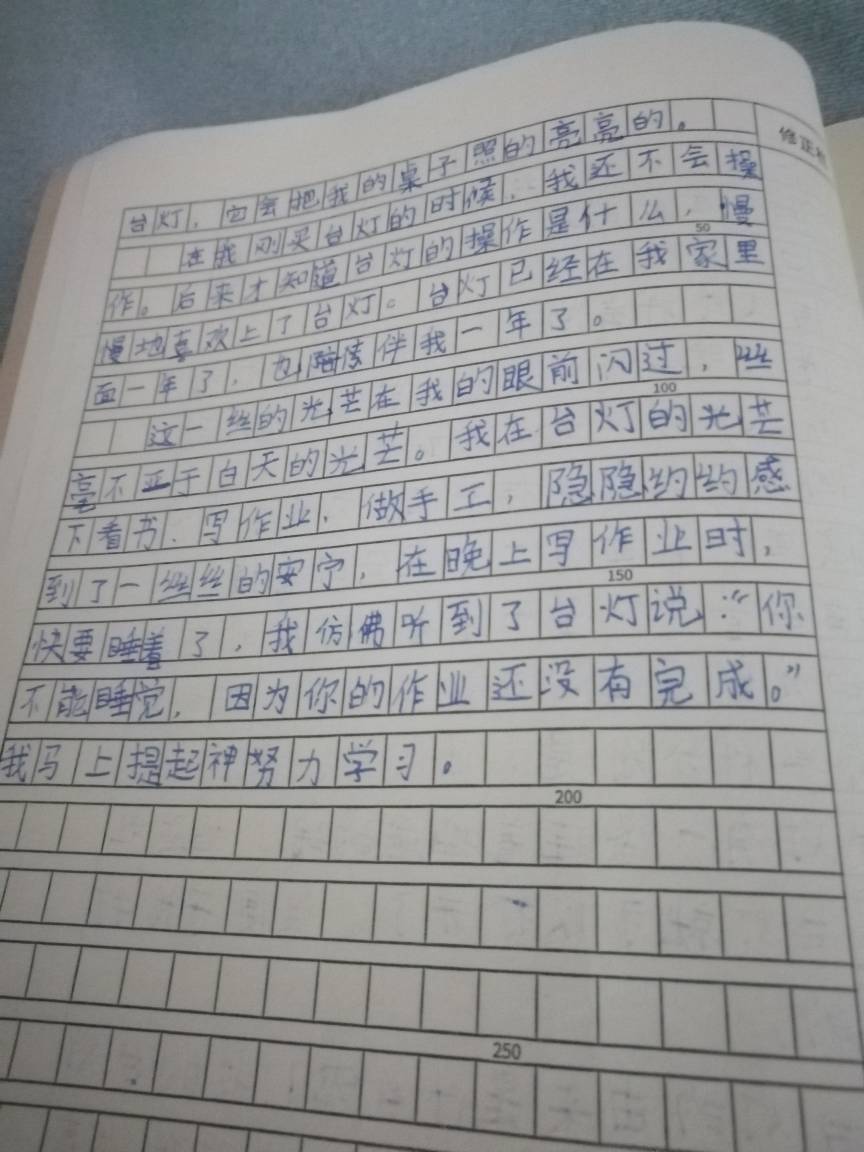 台灯，它会把我的桌子照的亮亮的。
在我刚买台灯的时候，我还不会操
作。后来才知道台灯的操作是什么，慢
50
慢地喜欢上了台灯。台灯已经在我家里
面一年了，也陪伴我一年了。
这一丝的光芒在我的眼前闪过，丝
100
毫不亚于白天的光芒。我在台灯的光芒
下看书、写作业、做手工，隐隐约约感
到了一丝丝的安宁，在晚上写作业时，
150
快要睡着了，我仿佛听到了台灯说：“你
不能睡觉，因为你的作业还没有完成。”
我马上提起神努力学习。
200
250
修正